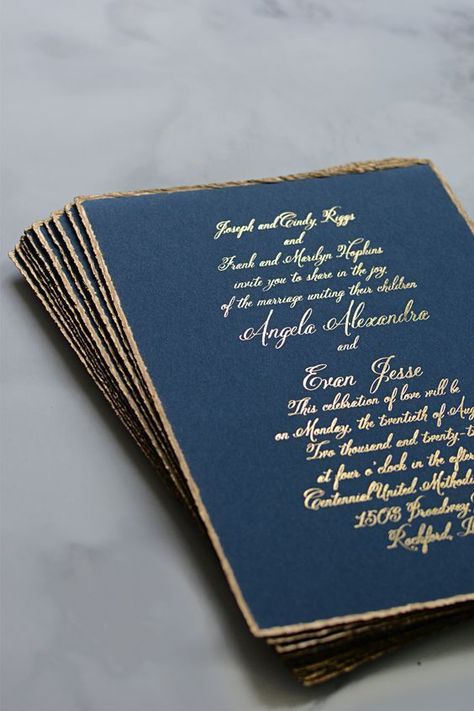 Joseph and Cindy Riggs
and
Frank and Marilyn Hopkins
invite you to share in the joy
of the marriage uniting their children
Angela Alexandra
and
Evan Jesse
This celebration of love will be
on Monday, the twentieth of Aug
Two thousand and twenty-t
at four o'clock in the after
Centennial United Methodis
1503 Broadway,
Rockford, Il